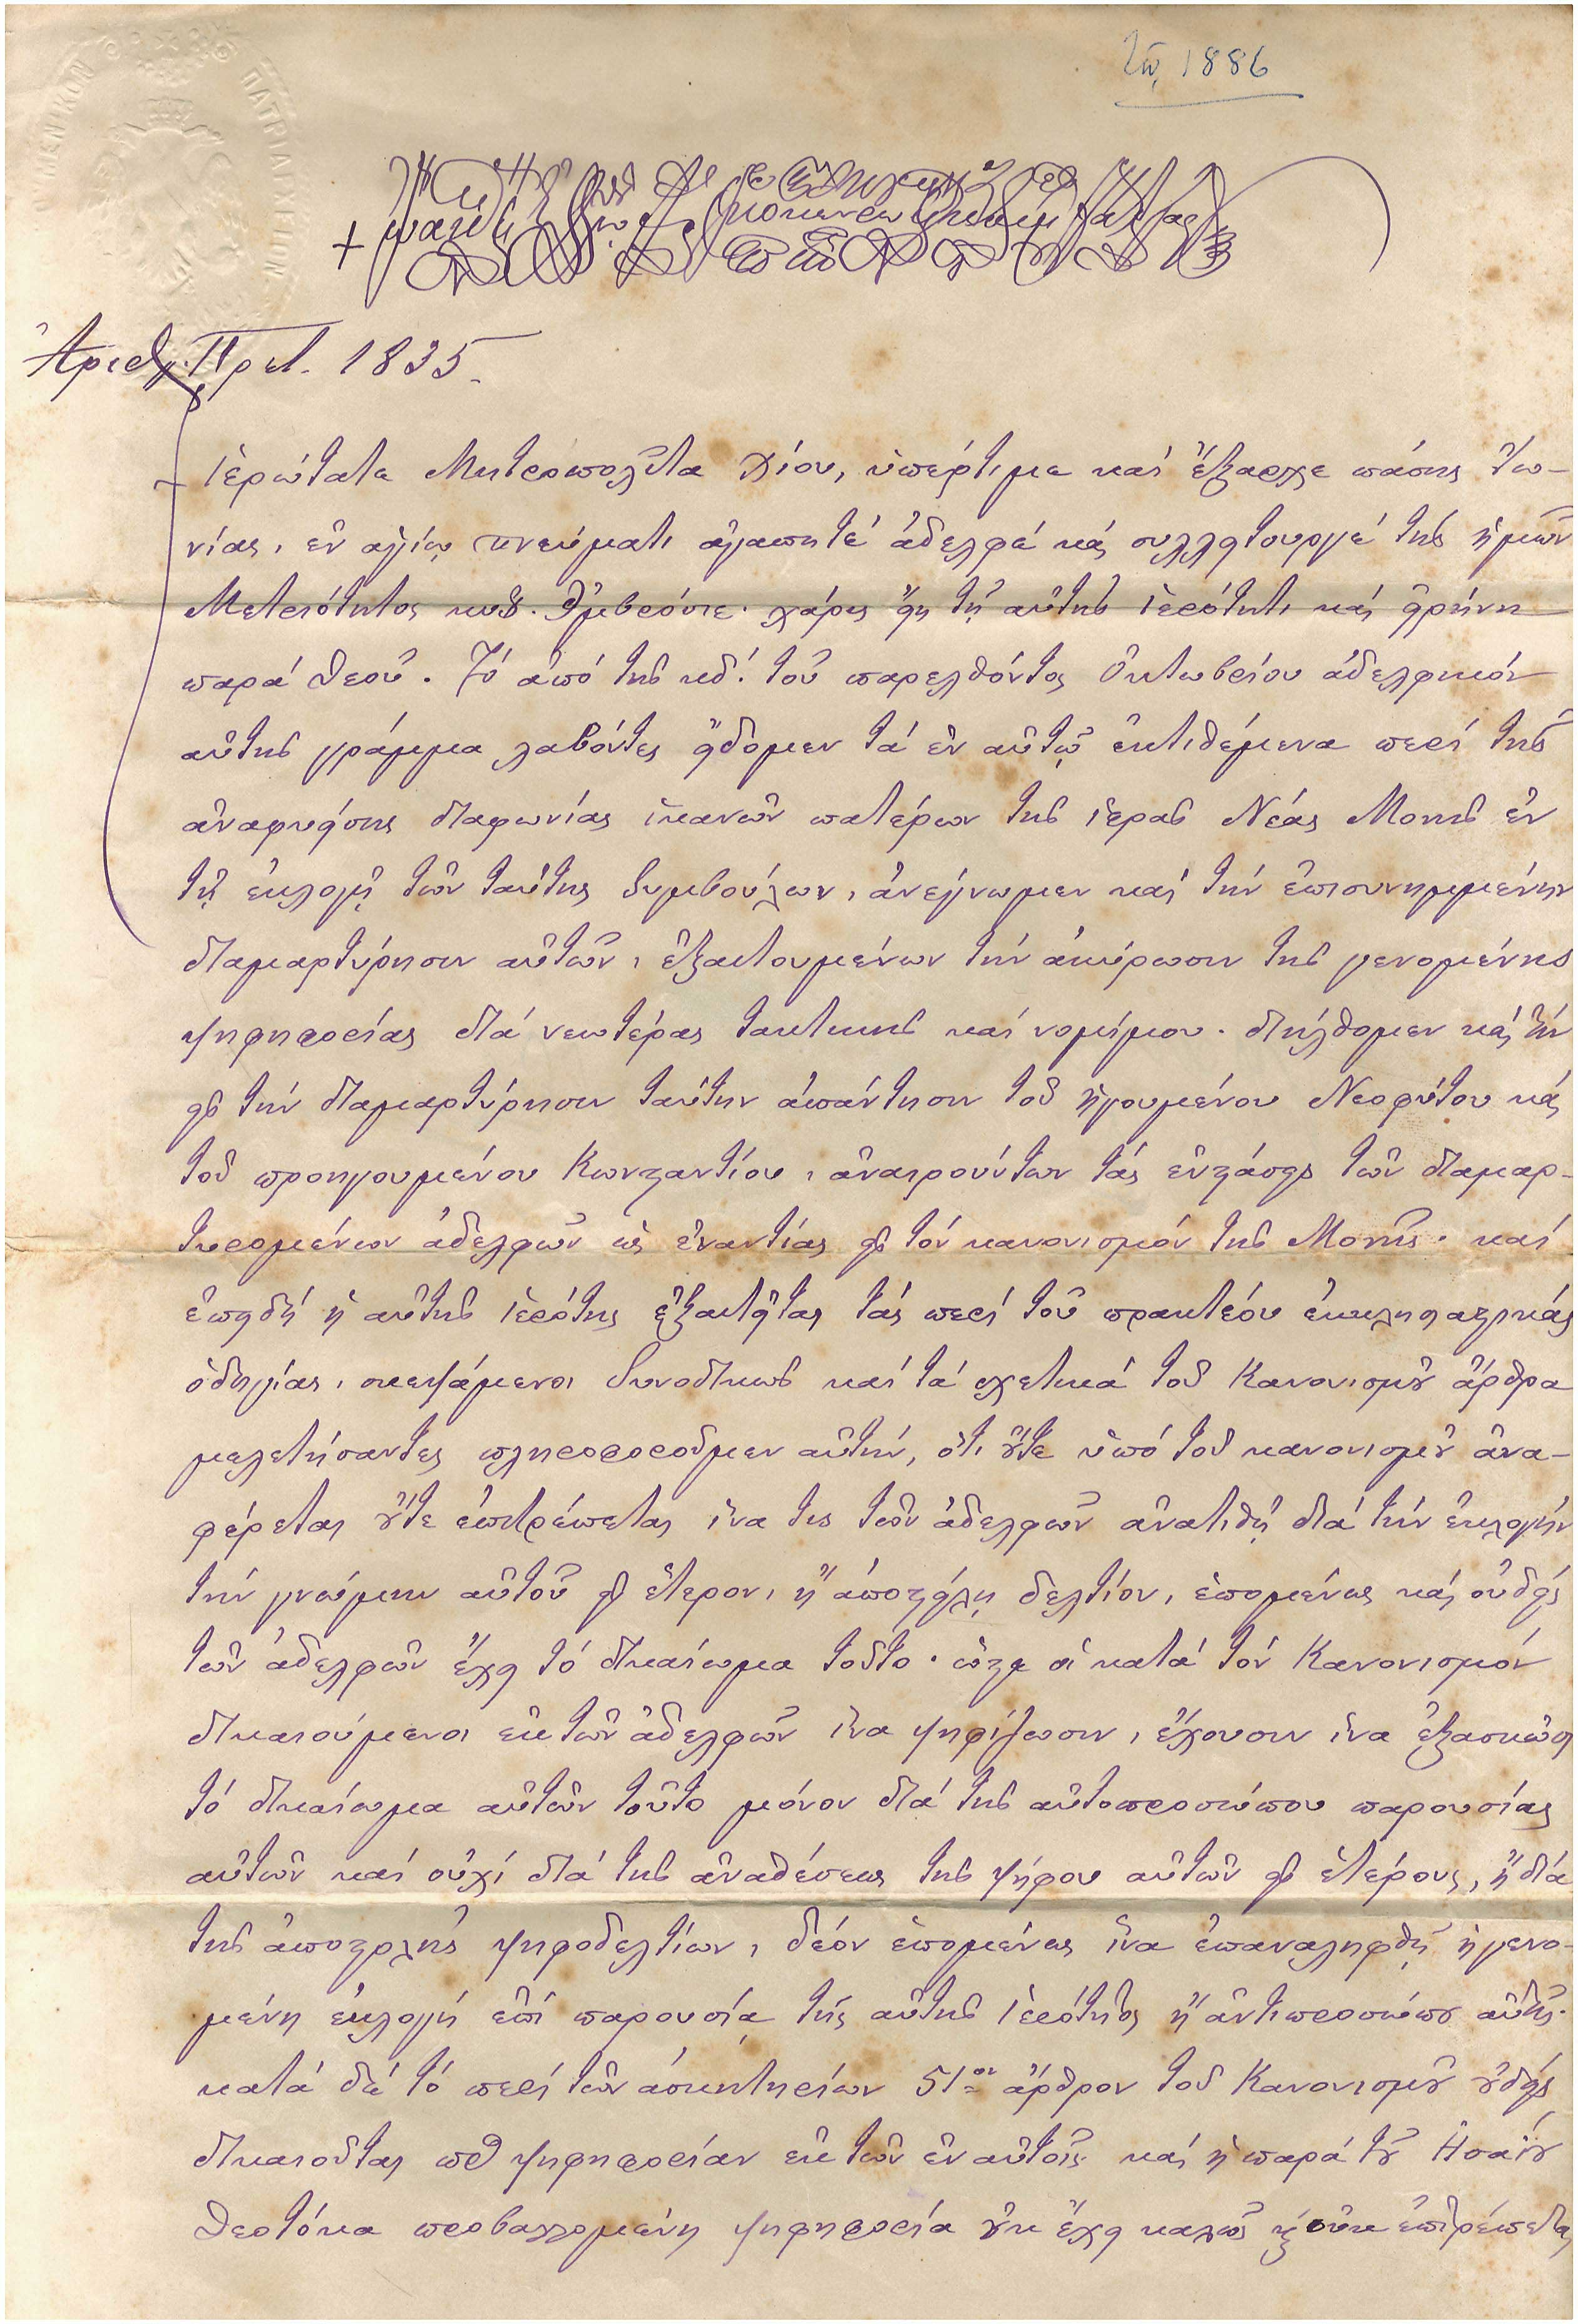 ΜΕΝΙΚΟΝ ΠΑΤΡΙΑΡΧΕΙΟΝ
1886
Ἀριθμ. Πρωτ. 1835.
Ἱερώτατε Μητροπολῖτα Χίου, ὑπέρτιμε καὶ ἔξαρχε πάσης Ἰω-
νίας, ἐν ἁγίῳ πνεύματι ἀγαπητὲ ἀδελφὲ καὶ συλλειτουργὲ τῆς ἡμῶν
Μετριότητος κὺρ Ἀμβρόσιε· χάρις εἴη τῇ αὐτῆς ἱερότητι καὶ εἰρήνη
παρὰ Θεοῦ. Τὸ ἀπὸ τῆς κδ΄. τοῦ παρελθόντος Ὀκτωβρίου ἀδελφικὸν
αὐτῆς γράμμα λαβόντες εἴδομεν τὰ ἐν αὐτῷ ἐκτιθέμενα περὶ τῆς
ἀναφυείσης διαφωνίας ἱκανῶν πατέρων τῆς ἱερᾶς Νέας Μονῆς ἐν
τῇ ἐκλογῇ τῶν ταύτης Συμβούλων, ἀνέγνωμεν καὶ τὴν ἐπισυνημμένην
διαμαρτύρησιν αὐτῶν, ἐξαιτουμένων τὴν ἀκύρωσιν τῆς γενομένης
ψηφηφορίας διὰ νεωτέρας τακτικῆς καὶ νομίμου· διήλθομεν καὶ τὴν
εἰς τὴν διαμαρτύρησιν ταύτην ἀπάντησιν τοῦ ἡγουμένου Νεοφύτου καὶ
τοῦ προηγουμένου Κωνσταντίου, ἀναιρούντων τὰς ἐνστάσεις τῶν διαμαρ-
τυρομένων ἀδελφῶν ὡς ἐναντίας εἰς τὸν κανονισμὸν τῆς Μονῆς· καὶ
ἐπειδὴ ἡ αὐτῆς ἱερότης ἐξαιτεῖται τὰς περὶ τοῦ πρακτέου ἐκκλησιαστικὰς
ὁδηγίας, σκεψάμενοι Συνοδικῶς καὶ τὰ σχετικὰ τοῦ Κανονισμοῦ ἄρθρα
μελετήσαντες πληροφοροῦμεν αὐτήν, ὅτι οὔτε ὑπὸ τοῦ κανονισμοῦ ἀνα-
φέρεται οὔτε ἐπιτρέπεται ἵνα τις τῶν ἀδελφῶν ἀνατιθῇ διὰ τὴν ἐκλογὴν
τὴν γνώμην αὐτοῦ εἰς ἕτερον, ἢ ἀποστείλῃ δελτίον, ἑπομένως καὶ οὐδεὶς
τῶν ἀδελφῶν ἔχει τὸ δικαίωμα τοῦτο· ὥστε οἱ κατὰ τὸν Κανονισμὸν
δικαιούμενοι ἐκ τῶν ἀδελφῶν ἵνα ψηφίζωσιν, ἔχουσιν ἵνα ἐξασκῶσι
τὸ δικαίωμα αὐτῶν τοῦτο μόνον διὰ τῆς αὐτοπροσώπου παρουσίας
αὐτῶν καὶ οὐχὶ διὰ τῆς ἀναθέσεως τῆς ψήφου αὐτῶν εἰς ἑτέρους, ἢ διὰ
τῆς ἀποστολῆς ψηφοδελτίων, δέον ἑπομένως ἵνα ἐπαναληφθῇ ἡ γενο-
μένη ἐκλογὴ ἐπὶ παρουσίᾳ τῆς αὐτῆς ἱερότητος ἢ ἀντιπροσώπου αὐτῆς·
κατὰ δὲ τὸ περὶ τῶν ἀσκητηρίων 51ον ἄρθρον τοῦ Κανονισμοῦ οὐδεὶς
δικαιοῦται πρὸς ψηφηφορίαν ἐκ τῶν ἐν αὐτοῖς καὶ ἡ παρὰ τοῦ Ἡσαΐου
Θεοτόκα προβαλλομένη ψηφηφορία οὐκ ἔχει καλῶς καὶ οὐκ ἐπιτρέπεται